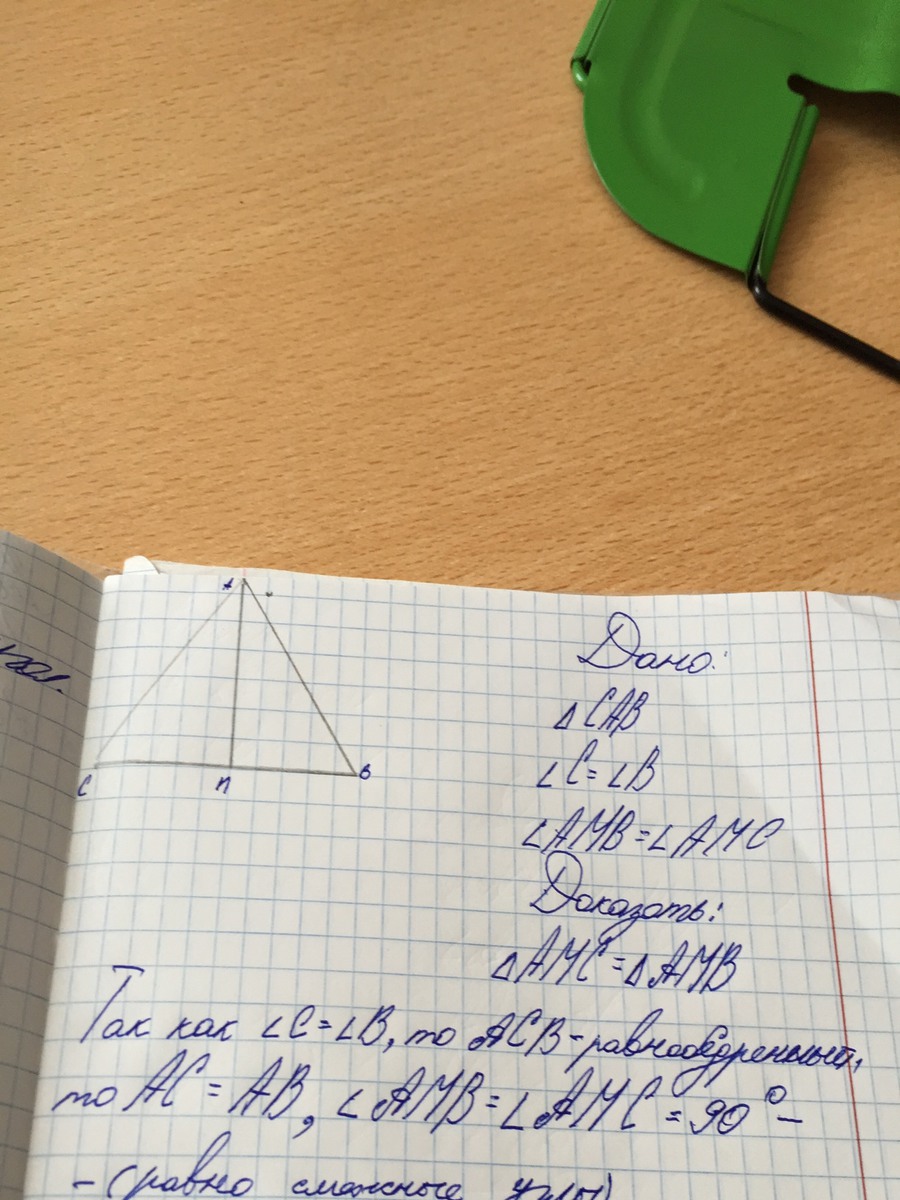 A
C
П
В
Дано:
△CAB
∠C=∠B
∠AMB=∠AMC
Доказать:
△AMC=△AMB
Так как ∠C=∠B, то ACB-равнобедренный,
то AC=AB, ∠AMB=∠AMC=90°-
-(равно смежные углы)